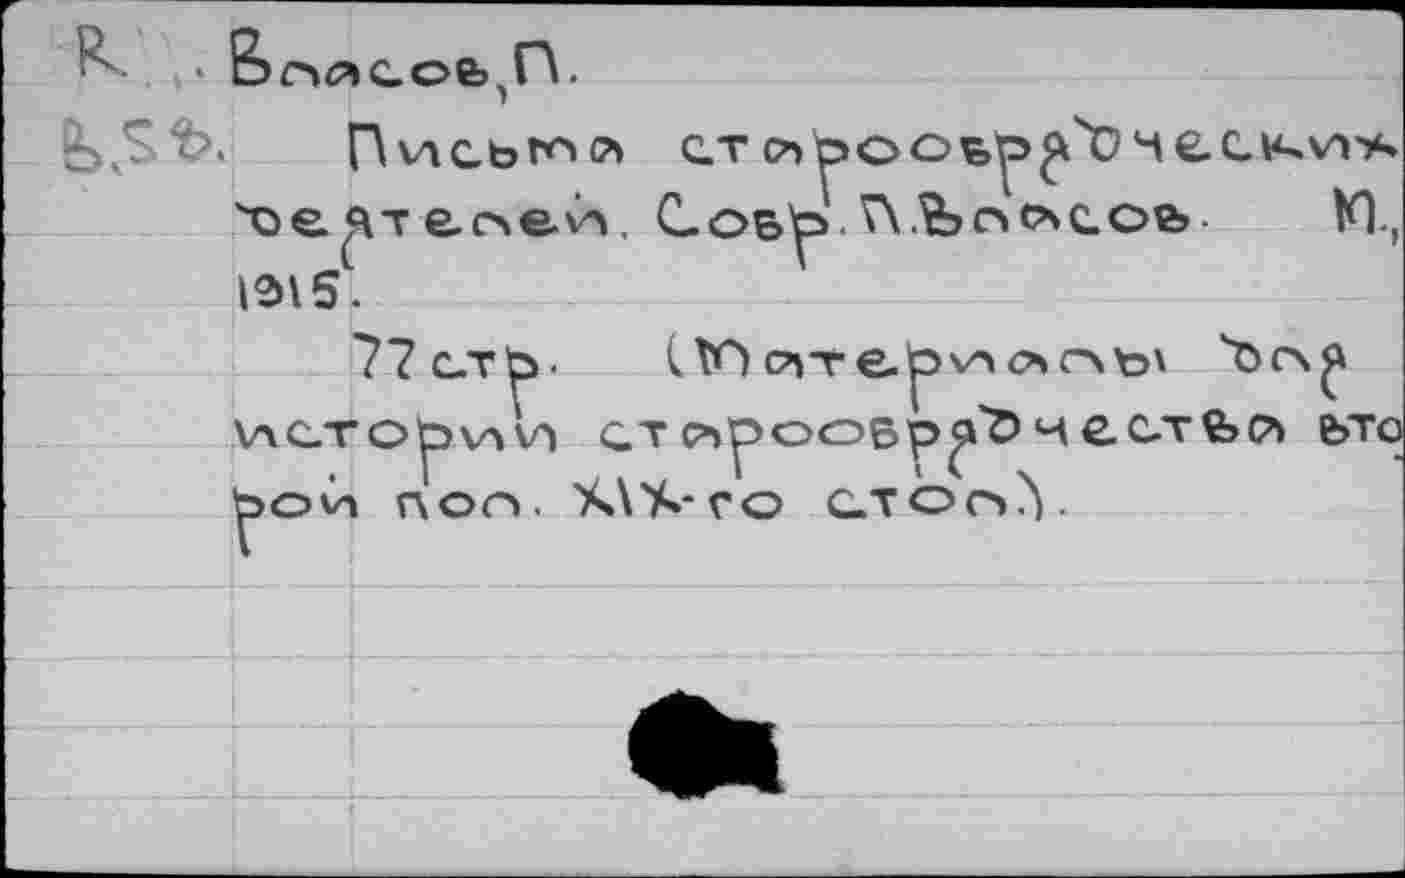 R. Власов, П.
Письма старообрядческих
деятелей. Собр. П.Власов. М.,
1915.
77 стр. (Материалы для
истории старообрядчества вто
рой пол. XIX-го стол.).